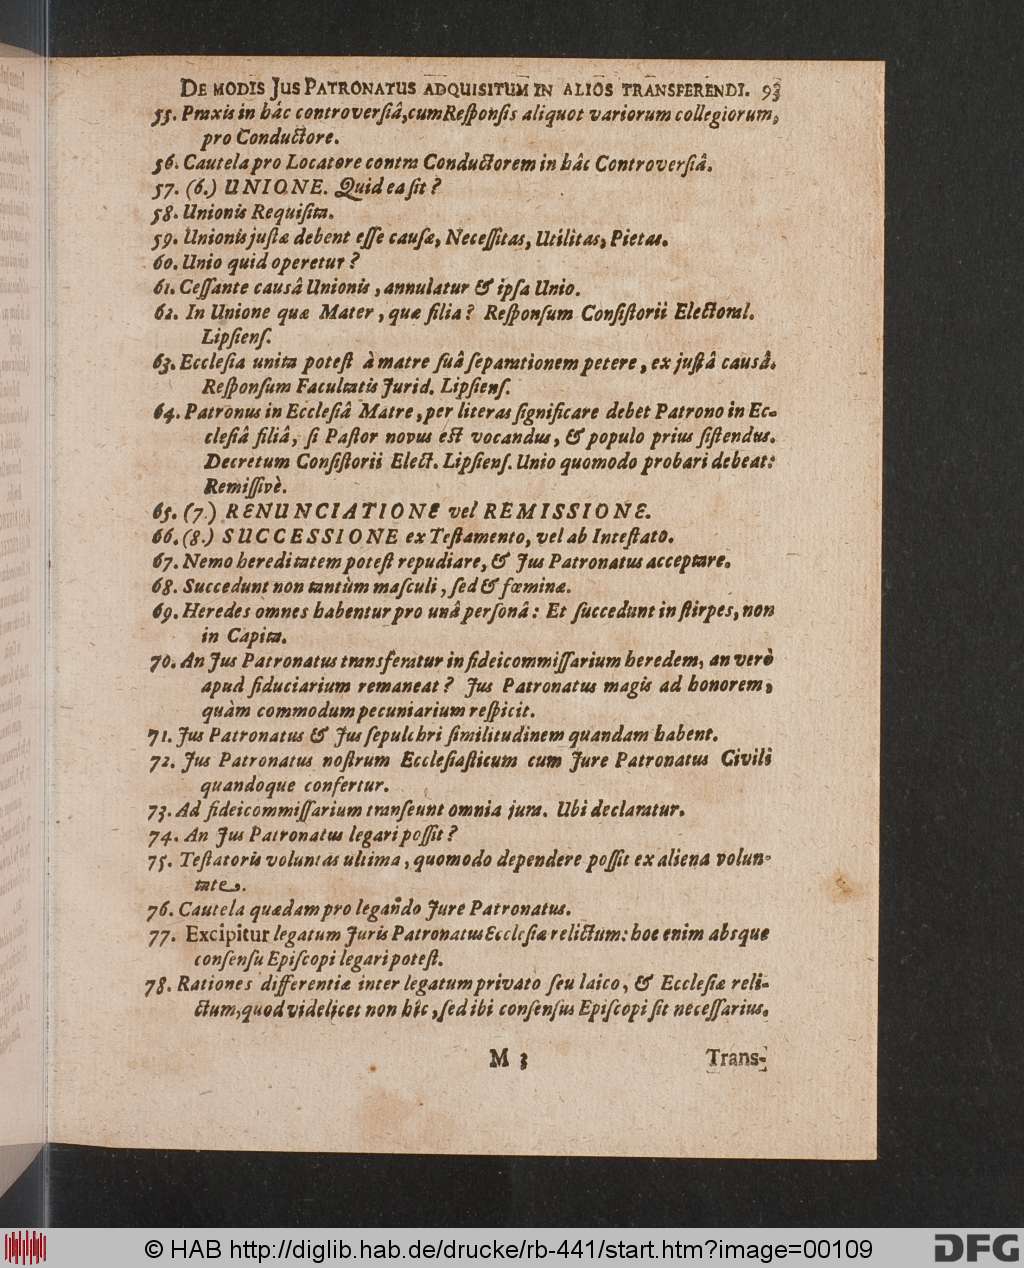 DE MODIS JUS PATRONATUS ADQUISITUM IN ALIOS TRANSFERENDI. 93
55. Praxis in hâc controversiâ, cum Responsis aliquot variorum collegiorum,
pro Conductore.
56. Cautela pro Locatore contra Conductorem in hâc Controversiâ.
57. (6.) UNIONE. Quid ea sit?
58. Unionis Requisita.
59. Unionis justæ debent esse causæ, Necessitas, Utilitas, Pietas.
60. Unio quid operetur?
61. Cessante causâ Unionis, annulatur & ipsa Unio.
62. In Unione quæ Mater, quæ filia? Responsum Consistorii Electoral.
Lipsiens.
63. Ecclesia unita potest à matre suâ separationem petere, ex justâ causâ.
Responsum Facultatis Jurid. Lipsiens.
64. Patronus in Ecclesiâ Matre, per literas significare debet Patrono in Ec-
clesiâ filiâ, si Pastor novus est vocandus, & populo prius sistendus.
Decretum Consistorii Elect. Lipsiens. Unio quomodo probari debeat:
Remissivè.
65. (7.) RENUNCIATIONE vel REMISSIONE.
66. (8.) SUCCESSIONE ex Testamento, vel ab Intestato.
67. Nemo hereditatem potest repudiare, & Jus Patronatus acceptare.
68. Succedunt non tantùm masculi, sed & fœminæ.
69. Heredes omnes habentur pro unâ personâ: Et succedunt in stirpes, non
in Capita.
70. An Jus Patronatus transferatur in fideicommissarium heredem, an verò
apud fiduciarium remaneat? Jus Patronatus magis ad honorem,
quàm commodum pecuniarium respicit.
71. Jus Patronatus & Jus sepulchri similitudinem quandam habent.
72. Jus Patronatus nostrum Ecclesiasticum cum Jure Patronatus Civili
quandoque confertur.
73. Ad fideicommissarium transeunt omnia jura. Ubi declaratur.
74. An Jus Patronatus legari possit?
75. Testatoris voluntas ultima, quomodo dependere possit ex aliena volun-
tate.
76. Cautela quædam pro legando Jure Patronatus.
77. Excipitur legatum Juris Patronatus Ecclesiæ relictum: hoc enim absque
consensu Episcopi legari potest.
78. Rationes differentiæ inter legatum privato seu laico, & Ecclesiæ reli-
ctum, quod videlicet non hîc, sed ibi consensus Episcopi sit necessarius.
M 3 Trans-
© HAB http://diglib.hab.de/drucke/rb-441/start.htm?image=00109 DFG